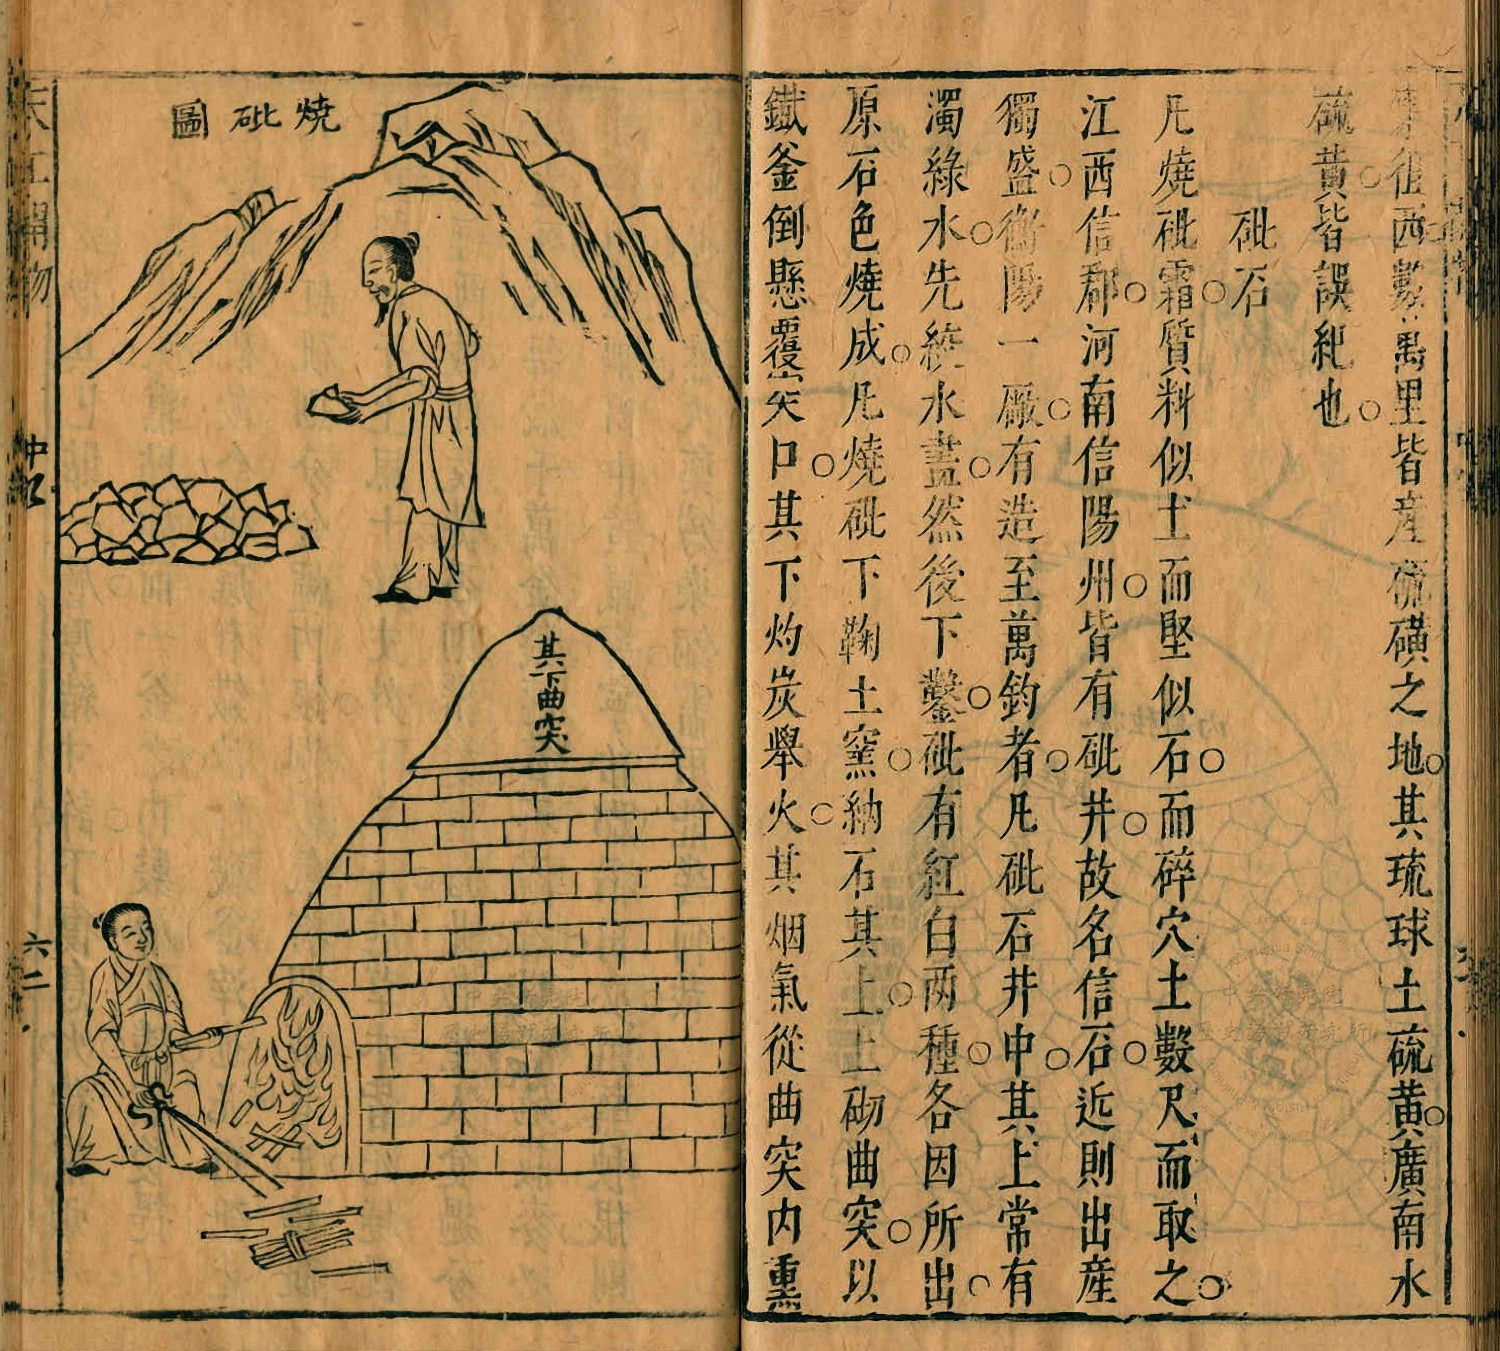 東從西數萬里皆產硫磺之地其琉球土硫黃廣南水
硫黃皆誤紀也
砒石
凡燒砒霜質料似土而堅似石而碎穴土數尺而取之
江西信郡河南信陽州皆有砒井故名信石近則出產
獨盛衡陽一厰有造至萬鈞者凡砒石井中其上常有
濁綠水先絞水盡然後下鑿砒有紅白兩種各因所出
原石色燒成凡燒砒下鞠土窯納石其上上砌曲突以
鐵釜倒懸覆突口其下灼炭舉火其烟氣從曲突內熏
燒砒圖
其下曲突
天工開物
中
六二